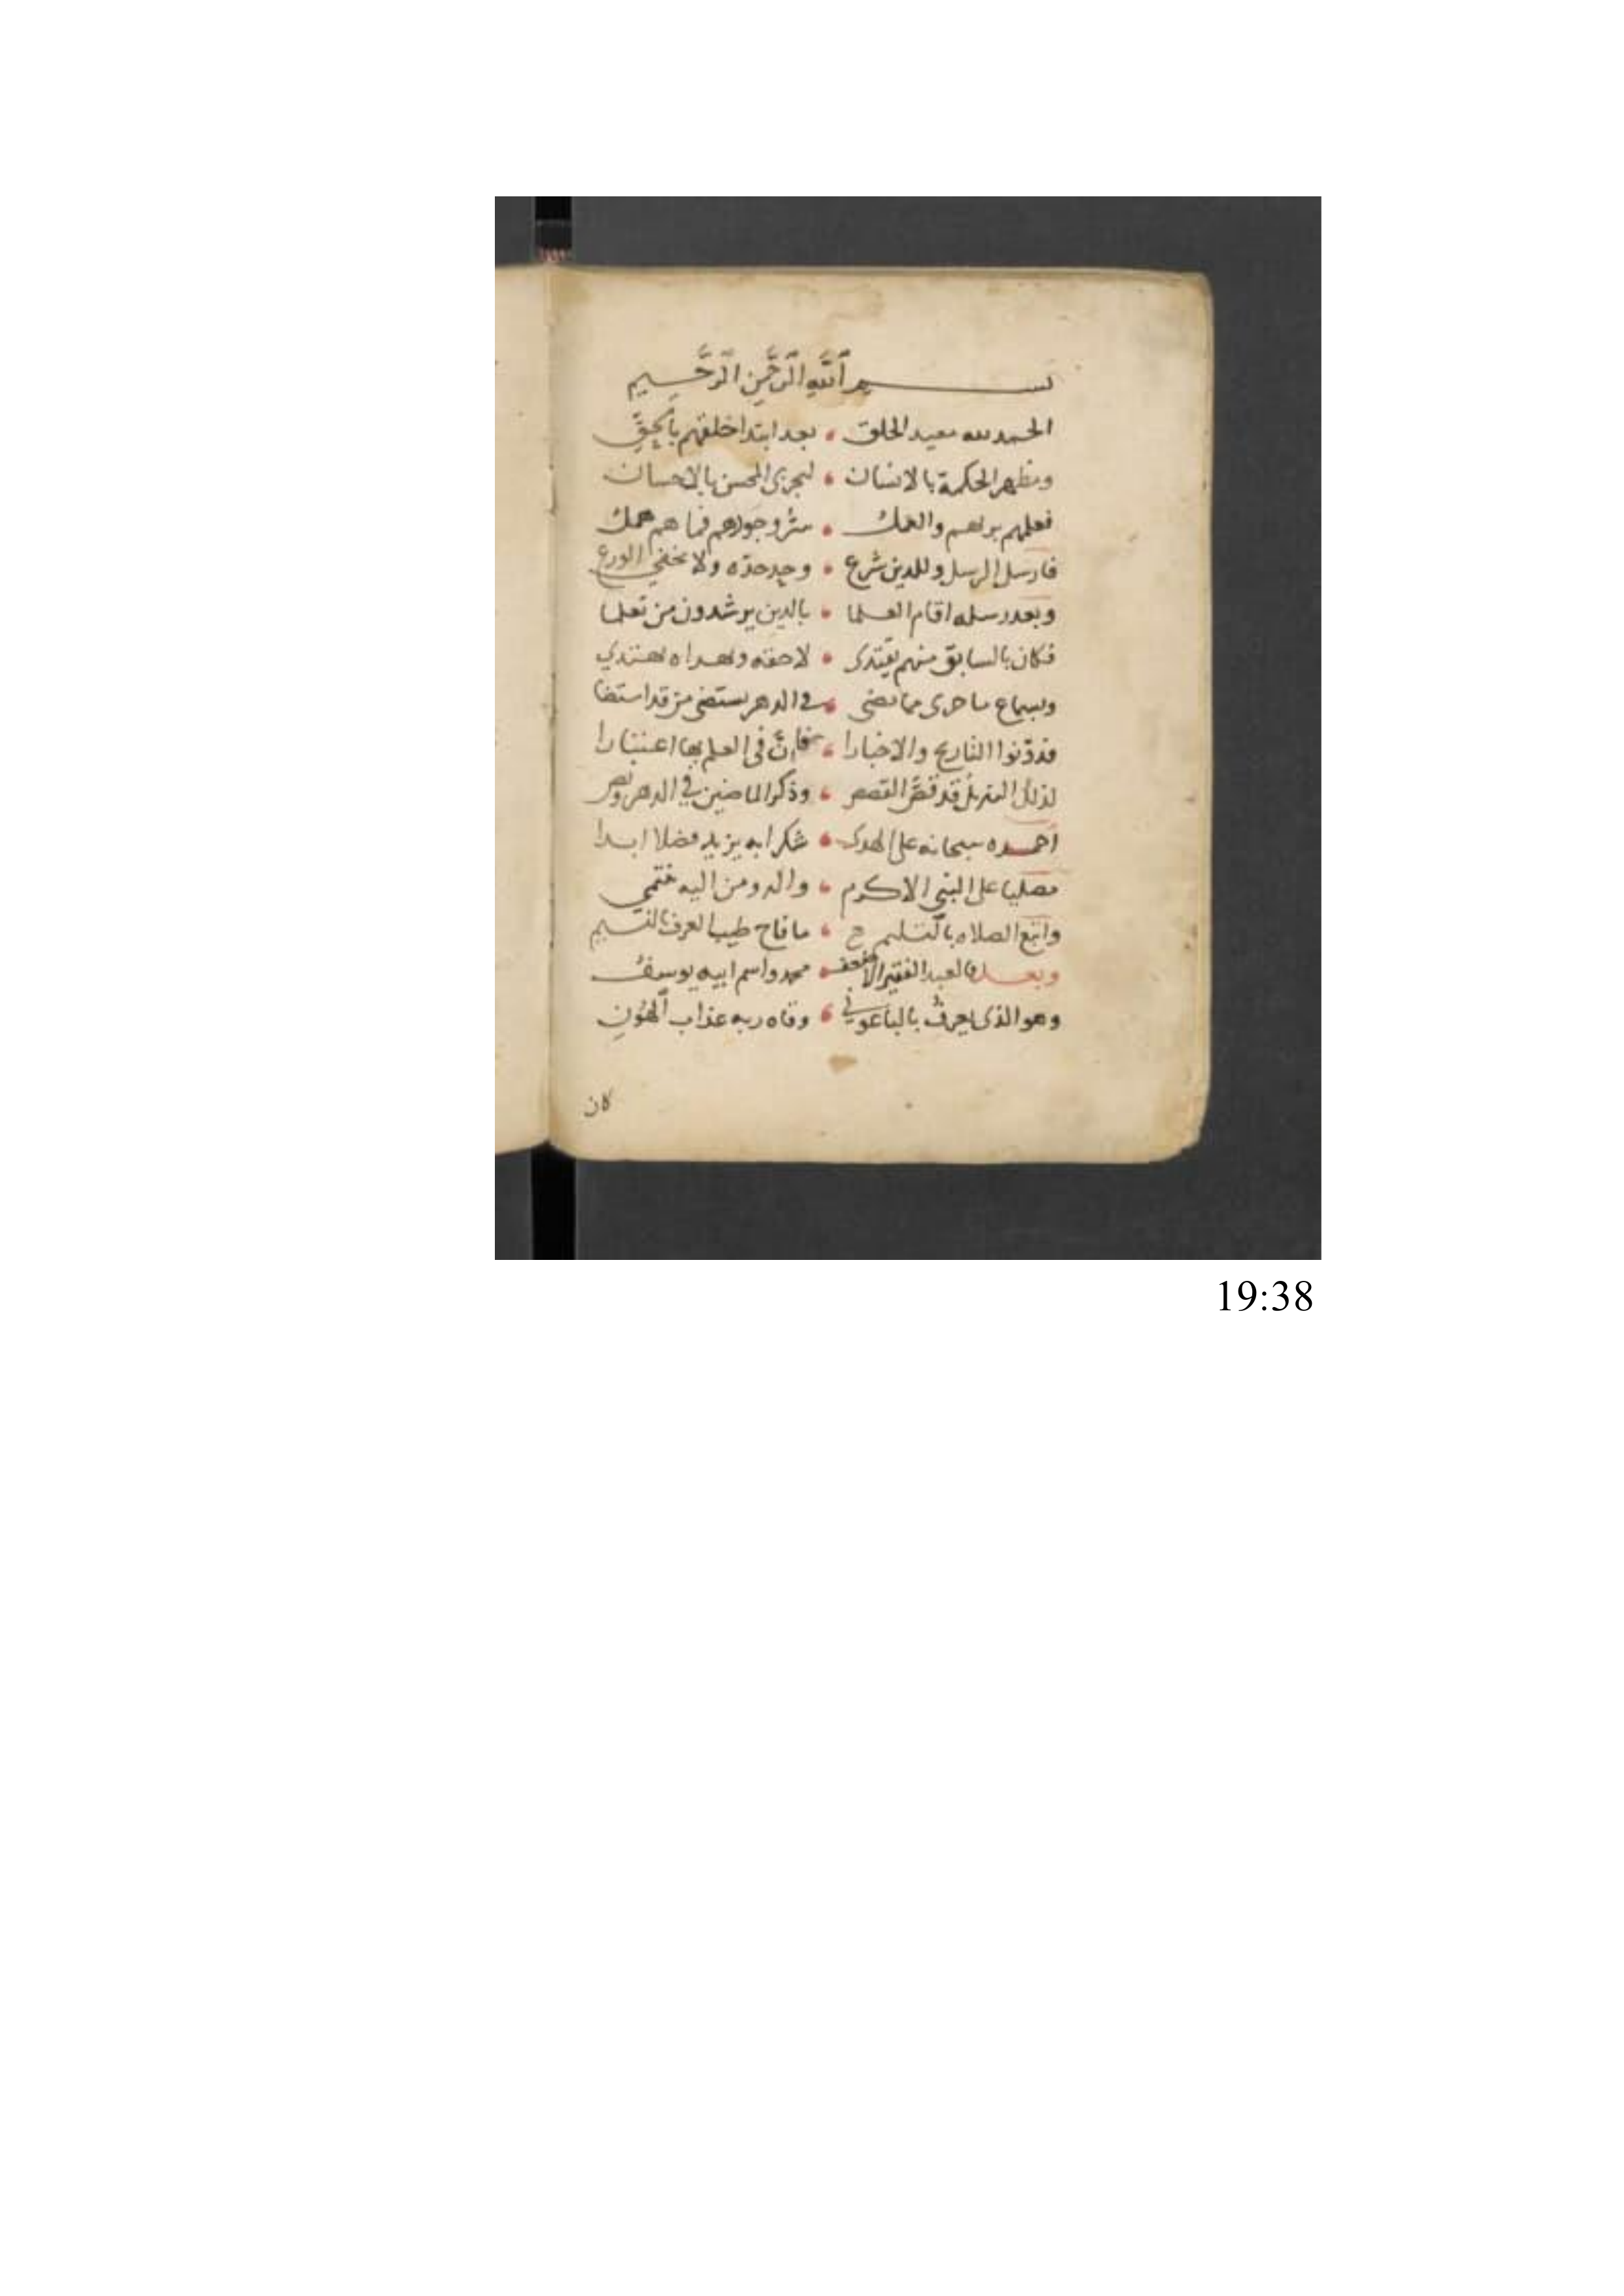 بسم ٱللَّه الرَّحْمن الرَّحيم
الحمد لله معيد الخلق ۰ بعد ابتدا خلقهم بالحقِّ
ومظهر الحكمة بالانسان ۰ ليجزى المحسن بالاحسان
فعلمهم بربهم والعمل ۰ وجودهم فما هم همل
فارسل الرسل وللدين شرع ۰ وحد حده ولا يخفي الورع
وبعد رسله اقام العلما ۰ بالدين يرشدون من تعلما
فكان بالسابق منهم يقتدى ۰ لاحقه وبهداه يهتدي
وبسماع ما جرى مما مضى ۰ في الدهر يستضى من قد استضا
فدوّنوا التاريخ والاخبارا ۰ فانّ في العلم بها اعتبارا
لذلك التنزيل قد قصَّ القصص ۰ وذكر الماضين في الدهر ونص
أحمده سبحانه على الهدى ۰ شكرا به يزيد فضلا ابدا
مصليا على النبي الاكرم ۰ واله ومن اليه منتمي
واتبع الصلاه بالتسليم ۰ ما فاح طيب العرف بالنسيم
وبعد قال العبد الفقير الاضعف ۰ محمد واسم ابيه يوسفُ
وهو الذى يعرفُ بالباعوني ۰ وقاه ربه عذاب الهُونِ
كان
19:38